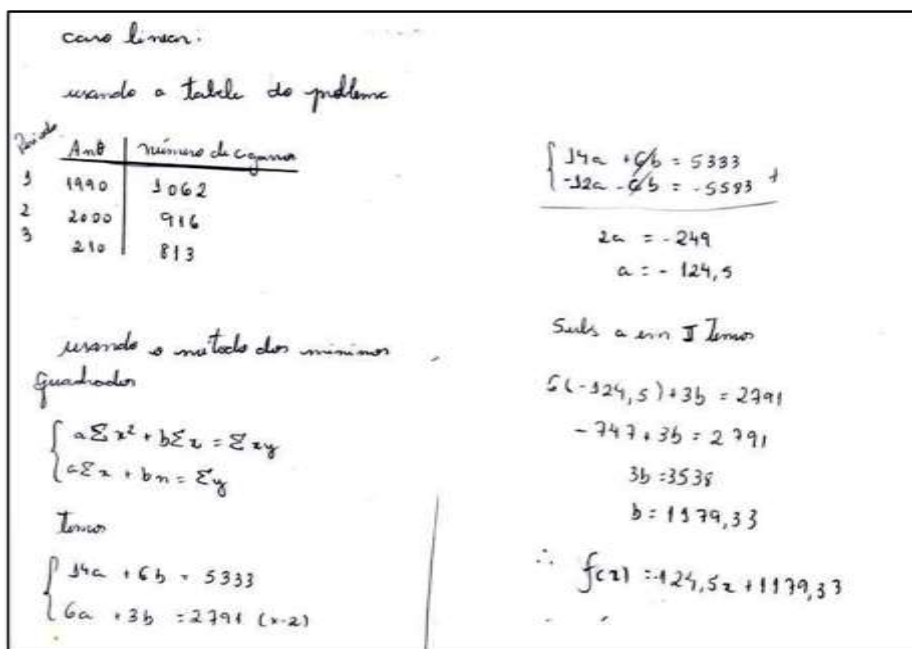 caso linear:
usando a tabela do problema
Período Ano número de cigarros
1 1990 1062
2 2000 916
3 210 813
usando o método dos mínimos
quadrados
{ aΣx² + bΣx = Σxy
{ aΣx + bn = Σy
temos
{ 14a + 6b = 5333
{ 6a + 3b = 2791 (x-2)
{ 14a + 6b = 5333
{ -12a - 6b = -5583 +
2a = -249
a = -124,5
Subs a em II temos
6(-124,5)+3b = 2791
-747+3b = 2791
3b = 3538
b = 1179,33
∴ f(x) = -124,5x + 1179,33